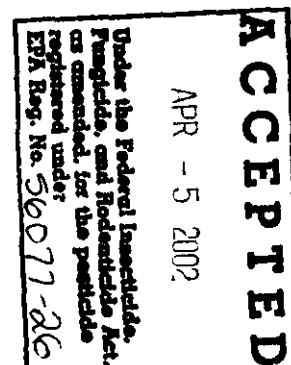 ACCEPTED
APR - 5 2002
Under the Federal Insecticide,
Fungicide, and Rodenticide Act,
as amended, for the pesticide
registered under
EPA Reg. No. 56077-26